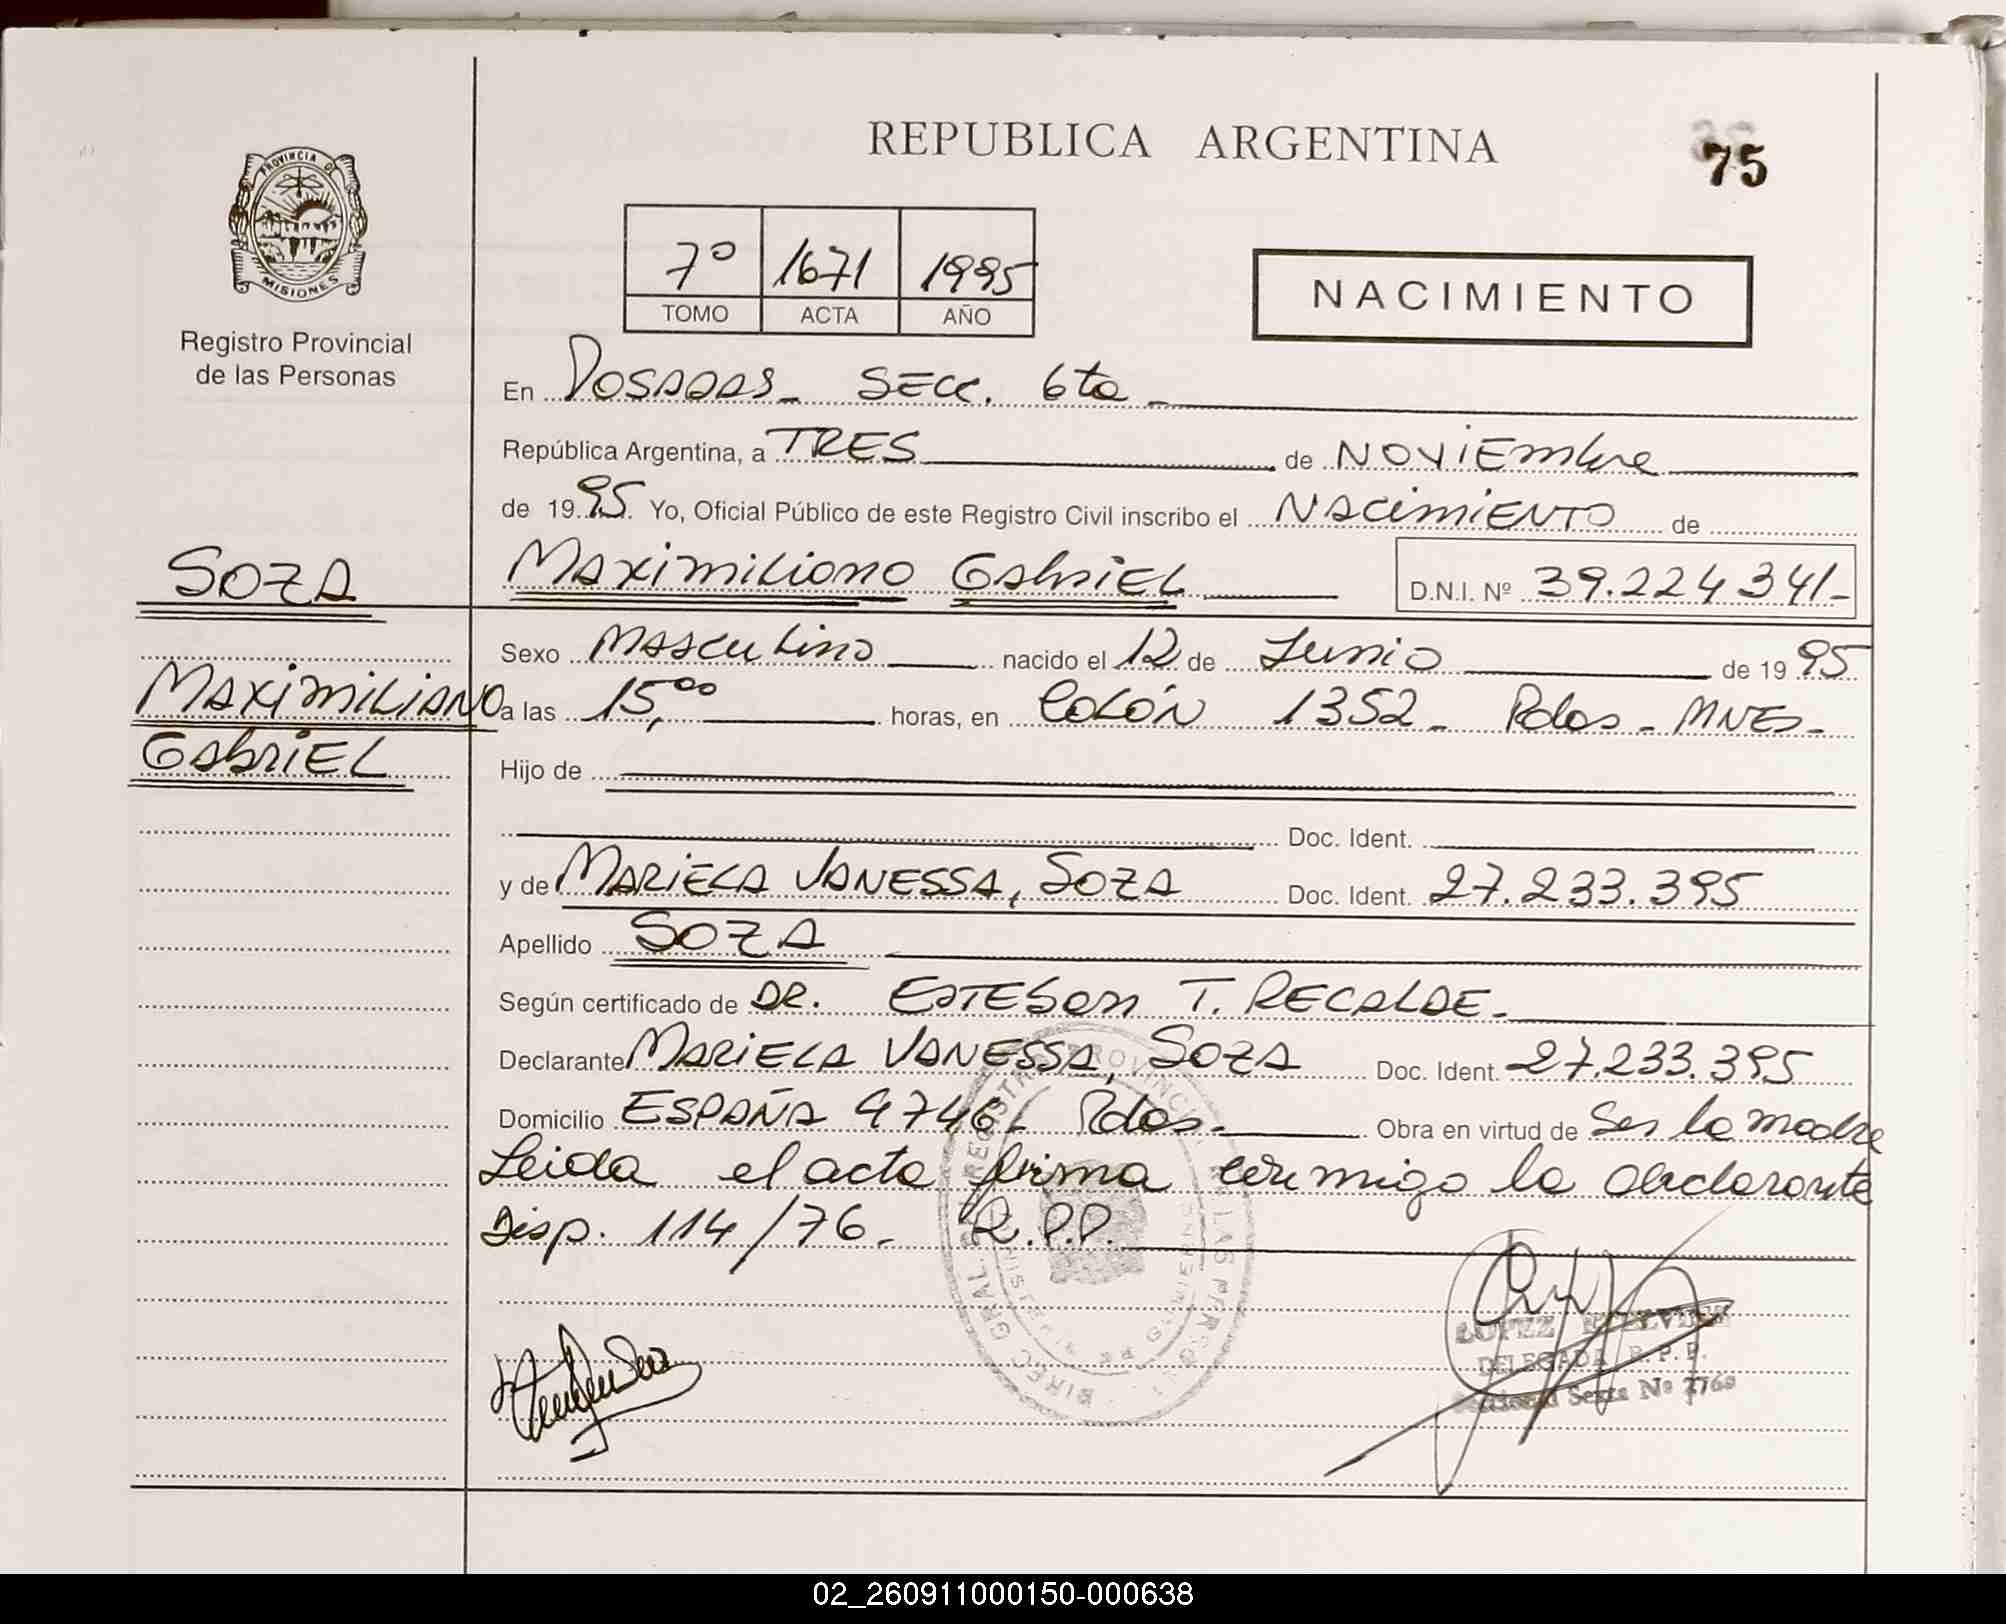 REPUBLICA ARGENTINA
75
PROVINCIA DE
MISIONES
Registro Provincial
de las Personas
7º 1671 1995
TOMO ACTA AÑO
NACIMIENTO
En Posadas - Secc. 6ta -
República Argentina, a TRES de Noviembre
de 1995. Yo, Oficial Público de este Registro Civil inscribo el Nacimiento de
Maximiliano Gabriel D.N.I. Nº 39.224.341-
SOZA
Maximiliano
Gabriel
Sexo Masculino nacido el 12 de Junio de 1995
a las 15,00 horas, en Colón 1352 - Pdas - MNES -
Hijo de
Doc. Ident.
y de Mariela Vanessa, Soza Doc. Ident. 27.233.395
Apellido SOZA
Según certificado de DR. Esteban T. Recalde -
Declarante Mariela Vanessa, Soza Doc. Ident. 27.233.395
Domicilio España 4746 Pdas - Obra en virtud de Ser la madre
Leida el acta firma conmigo la declarante
Disp. 114/76 - R.P.P.
LOPEZ
DELEGADA R.P.P.
Sexta Nº 2760
02_260911000150-000638